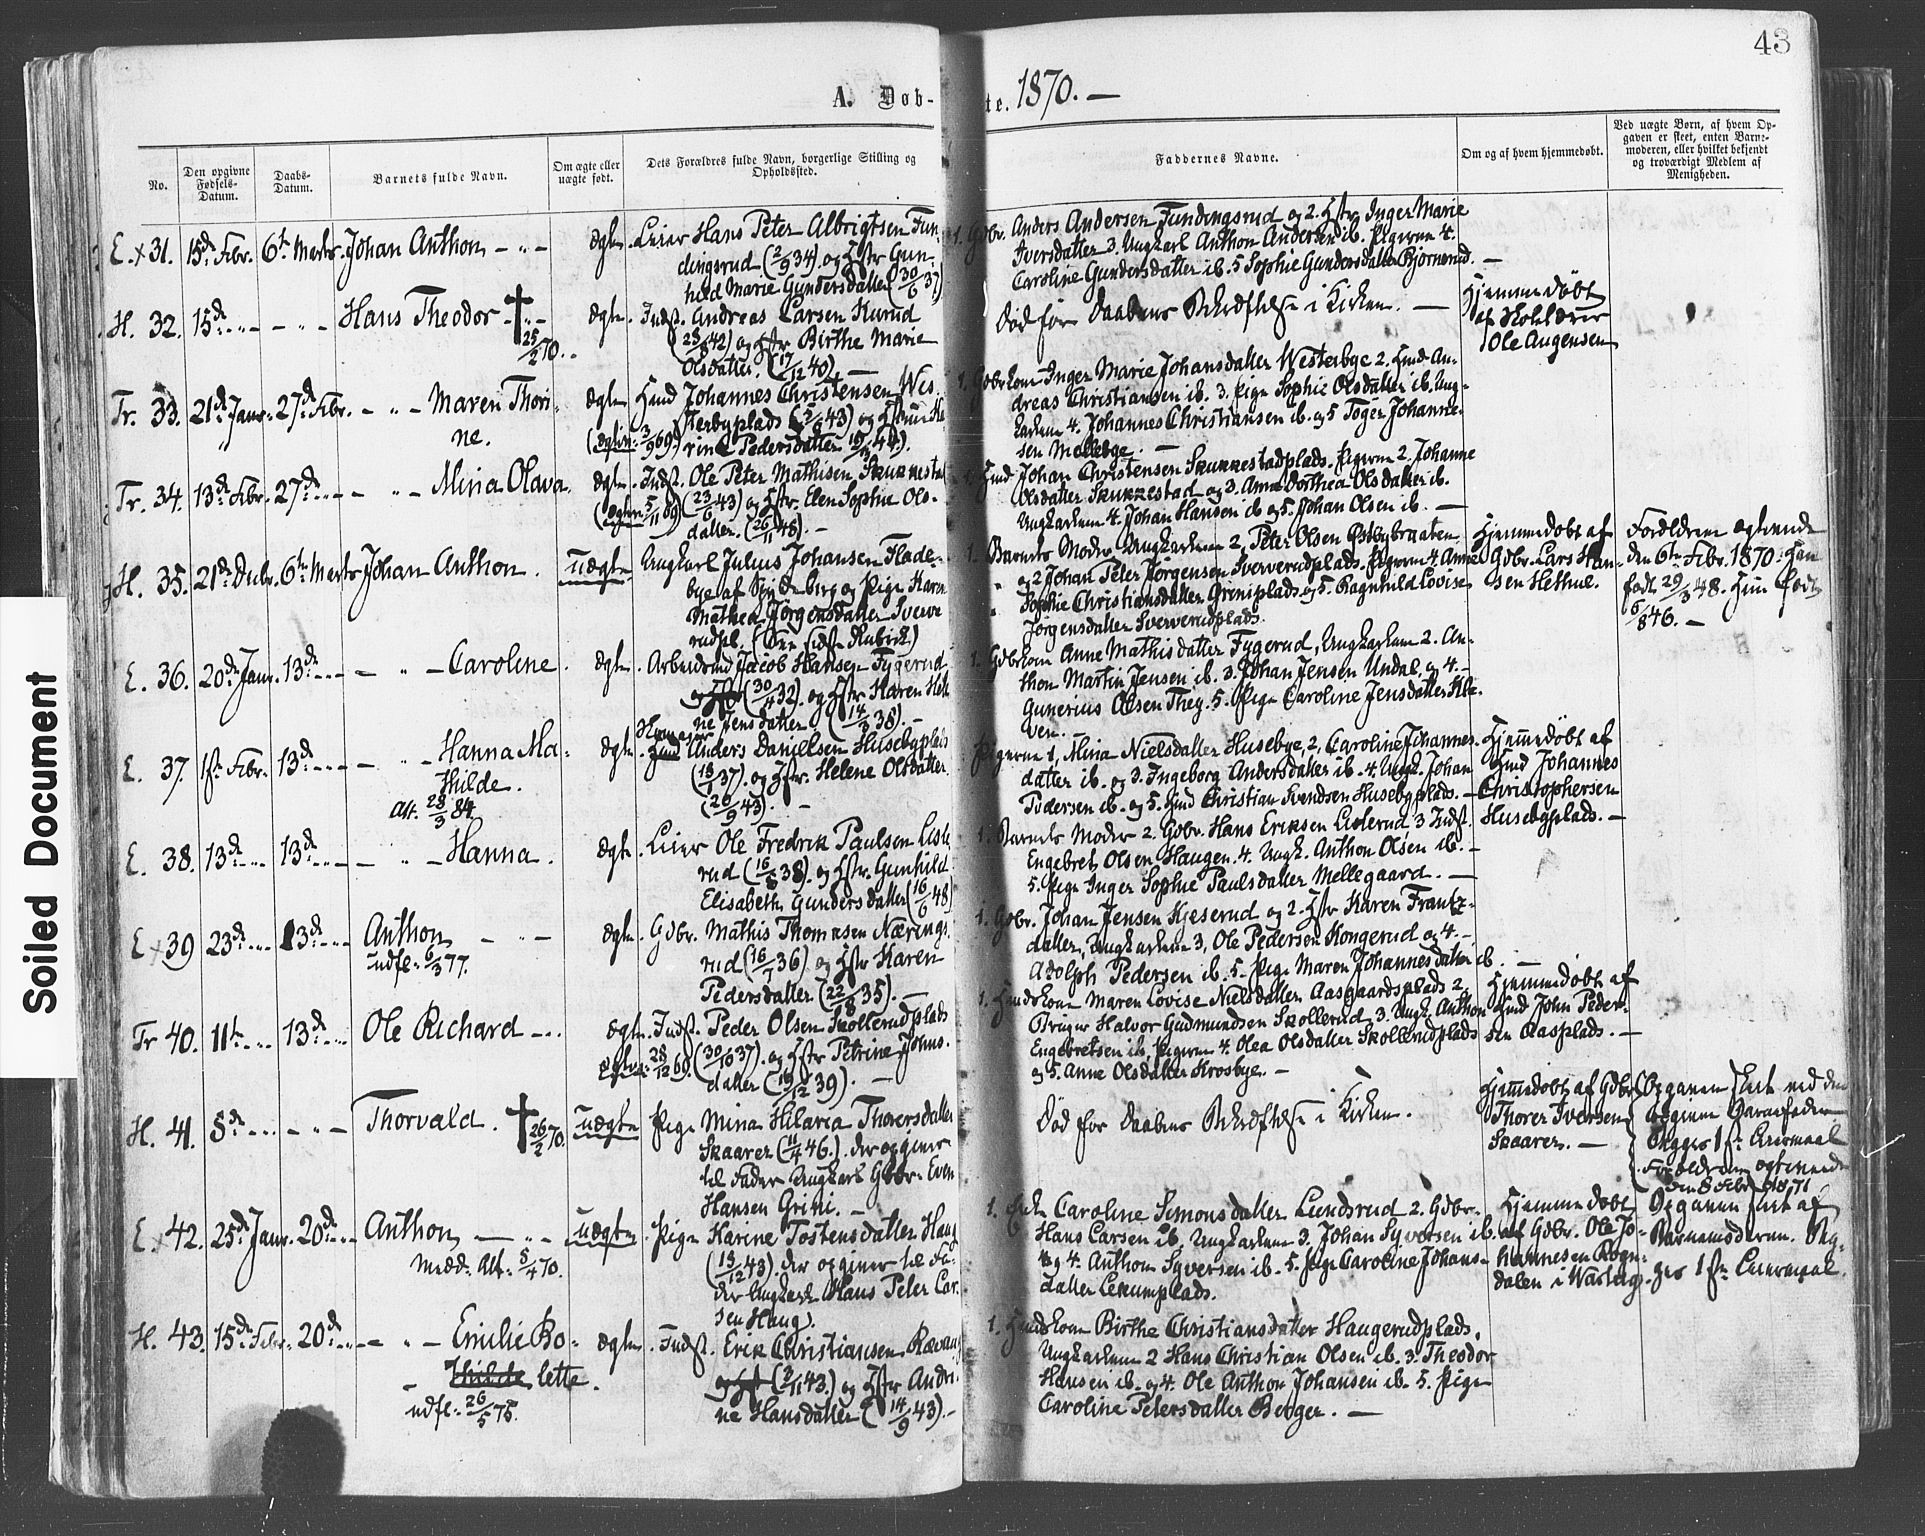 43
A. Døb-te. 1870. —
No.
Den opgivne Fødsels-Datum.
Daabs-Datum.
Barnets fulde Navn.
Om ægte eller uægte født.
Dets Forældres fulde Navn, borgerlige Stilling og Opholdssted.
Faddernes Navne.
Om og af hvem hjemmedøbt.
Ved uægte Børn, af hvem Opgaven er skeet, enten Barnemoderen, eller hvilket bekjendt og troværdigt Medlem af Menigheden.
Soiled Document
E. x 31. 15de Febr. 6te Marts Johan Anthon — „ — ægte. Leier Hans Peter Albrigtsen Fun-
dingsrud (2/9 34) og Hstr Gun-
hild Marie Gundersdatter (30/6 37)
1. Gdbr. Anders Andersen Fundingsrud og 2. Hstr Inger Marie
Iversdatter 3. Ungkarl Anthon Andersen ib. Pigerne 4.
Caroline Gundersdatter ib. 5 Sophie Gundersdatter Bjørnerud. —
H. 32. 15de „ — — „ — Hans Theodor †
25/2 70.
ægte. Indst. Andreas Larsen Kurud
(23/8 42) og Hstr Birthe Marie
Olsdatter. (17/12 40) —
Død før Daabens Bekræftelse i Kirken. —
Hjemmedøbt
af
Ole Augensen
Tr. 33. 21de Janr. 27de Febr. — „ — Maren Thori-
ne.
ægte (Egtev: 3/9 69) Hmd Johannes Christensen Wes-
terbyplads (5/6 43) og Hstru Ka-
rine Pedersdatter 44).
1. Gdbrkone Inger Marie Johansdatter Westerbye 2. Hmd An-
dreas Christiansen ib. 3. Pige Sophie Olsdatter ib. Ung-
karlene 4. Johannes Christiansen ib. og 5 Toger Johanne-
sen Mellebye. —
Tr. 34. 13de Febr. 27de „ — — „ — Mina Olava.
ægte. (Egtev. 5/11 69) Indst. Ole Peter Mathisen Skukkestad
(23/6 43) og Hstr. Elen Sophie Ols-
datter. (26/11 48). —
Hmd Johan Christensen Skukkestadplads. Pigerne 2. Johanne
Olsdatter Skukkestad og 3. Anne Dorthea Olsdatter ib.
Ungkarlene 4. Johan Hansen ib og 5. Johan Olsen ib. —
H. 35. 21de Decbr. 6te Marts Johan Anthon. uægte Ungkarl Julius Johansen Flade-
bye af Spydeberg og Pige Karen
Mathea Jørgensdatter Sverve-
rudpl. (See sidste Rubrik)
1. Barnets Moder Ungkarlene 2. Peter Olsen Østbybraaten
og 2 Johan Peter Jørgensen Sververudplads. Pigerne 4. Anne
Sophie Christiansdatter Greniplads og 5. Ragnhild Lovise
Jørgensdatter Sververudplads.
Hjemmedøbt af
Gdbr. Lars Han-
sen Hethue.
Forældrene egteviede
den 6te Febr. 1870. Han
født 29/3 48. Hun født
6/8 46. —
E. 36. 20de Janr. 13de „ — — „ — Caroline. ægte. Arbeidsmd Jacob Hansen Fygerud
(30/4 32) og Hstr Karen Hele-
ne Jensdatter (14/3 38). —
1. Gdbrkone Anne Mathisdatter Fygerud, Ungkarlene 2. An-
thon Martin Jensen ib. 3. Johan Jensen Undal, og 4. —
Gunerius Olsen They. 5. Pige Caroline Jensdatter Klo-
ven. —
E. 37. 1ste Febr. 13de „ — — „ — Hanna Ma-
thilde.
Att. 28/3 84.
ægte. Anders Danielsen Husebyplads
(13/1 37). og Hstr. Helene Olsdatter
(20/9 43). —
Pigerne 1, Mina Nielsdatter Husebye, 2, Caroline Johannes-
datter ib. og 3. Ingeborg Andersdatter ib. 4. Ungk. Johan
Pedersen ib. og 5. Hmd Christian Svendsen Husebyplads. —
Hjemmedøbt af
Hmd Johannes
Christophersen
Husebyplads. —
E. 38. 13de „ — 13de „ — — „ — Hanna. ægte. Leier Ole Fredrik Paulsen Liste-
rud (16/8 38). og Hstr. Gunhild
Elisabeth Gundersdatter (16/6 48)
1. Barnets Moder 2. Gdbr. Hans Eriksen Listerud 3 Indst.
Engebret Olsen Haugen. 4. Ungk. Anthon Olsen ib. —
5. Pige Inger Sophie Paulsdatter Mellegaard. —
E x 39 23de „ — 13de „ — Anthon — „ —
udfl: 6/3 77.
ægte. Gdbr. Mathis Thomesen Nærings-
rud (16/7 36) og Hstr Karen
Pedersdatter (22/8 35). —
1. Gdbr. Johan Jensen Kjeserud og 2. Hstr Karen Frantz-
datter, Ungkarlene 3, Ole Pedersen Kongerud og 4. —
Adolph Pedersen ib. 5. Pige Maren Johannesdatter ib. —
Tr 40. 11te „ — 13de „ — Ole Richard — „
ægte. Egtev: 28/12 69. Indst. Peder Olsen Skollerudplads
(30/10 37). og Hstr Petrine Johns-
datter (19/12 39). —
1. Hmdskone Maren Lovise Nielsdatter Aasgaardsplads 2.
Bruger Halvor Gudmundsen Skollerud. 3. Ungk. Anthon
Engebretsen ib, Pigerne 4. Olea Olsdatter Skollerudplads
og 5. Anne Olsdatter Krosbye. —
Hjemmedøbt af
Hmd John Peder-
sen Aasplads. —
H. 41. 8de „ — — „ — Thorvald. † 26/2 70. uægte Pige Mina Hilaria Thorersdatter
Skaarer (11/4 46.). der opgiver
til Fader Ungkarl Gdbr. Even
Hansen Grini. —
Død før Daabens Bekræftelse i Kirken.
Hjemmedøbt af Gdbr
Thorer Iversen
Skaarer. —
Opgaven skeet ved den
opgivne Barnefader
Begges 1ste Leiermaal
Forældrene egteviede
den 8 Febr. 1871
E. x 42. 25de Janr. 20de „ — Anthon — „ —
Medd. Att. 5/4 70.
uægte Pige Karine Tostensdatter Haug
(13/12 43). der opgiver til Fa-
der Ungkarl Hans Peter Lar-
sen Haug.
1. Caroline Simonsdatter Lundsrud 2. Gdbr.
Hans Larsen ib, Ungkarlene 3. Johan Syversen ib.
og 4. Anthon Syversen ib. 5. Pige Caroline Johans-
datter Lekumplads.
Hjemmedøbt
af Gdbr. Ole Jo-
hannesen Rogn-
dalen i
Opgaven skeet af
Barnemoderen. Beg-
ges 1ste Leiermaal.
H. 43. 15de Febr. 20de „ — — „ — Emilie Bo-
thilde lette.
udfl: 26/5 75.
ægte. Indst. Erik Christiansen
(2/11 43.) og Hstr Andri-
ne Hansdatter (14/9 43). —
1. Hmdskone Birthe Christiansdatter Haugerudplads.
Ungkarlene 2 Hans Christian Olsen ib. 3. Theodor
Hansen ib. og 4. Ole Anthon Johansen ib. 5. Pige
Caroline Petersdatter Berger. —